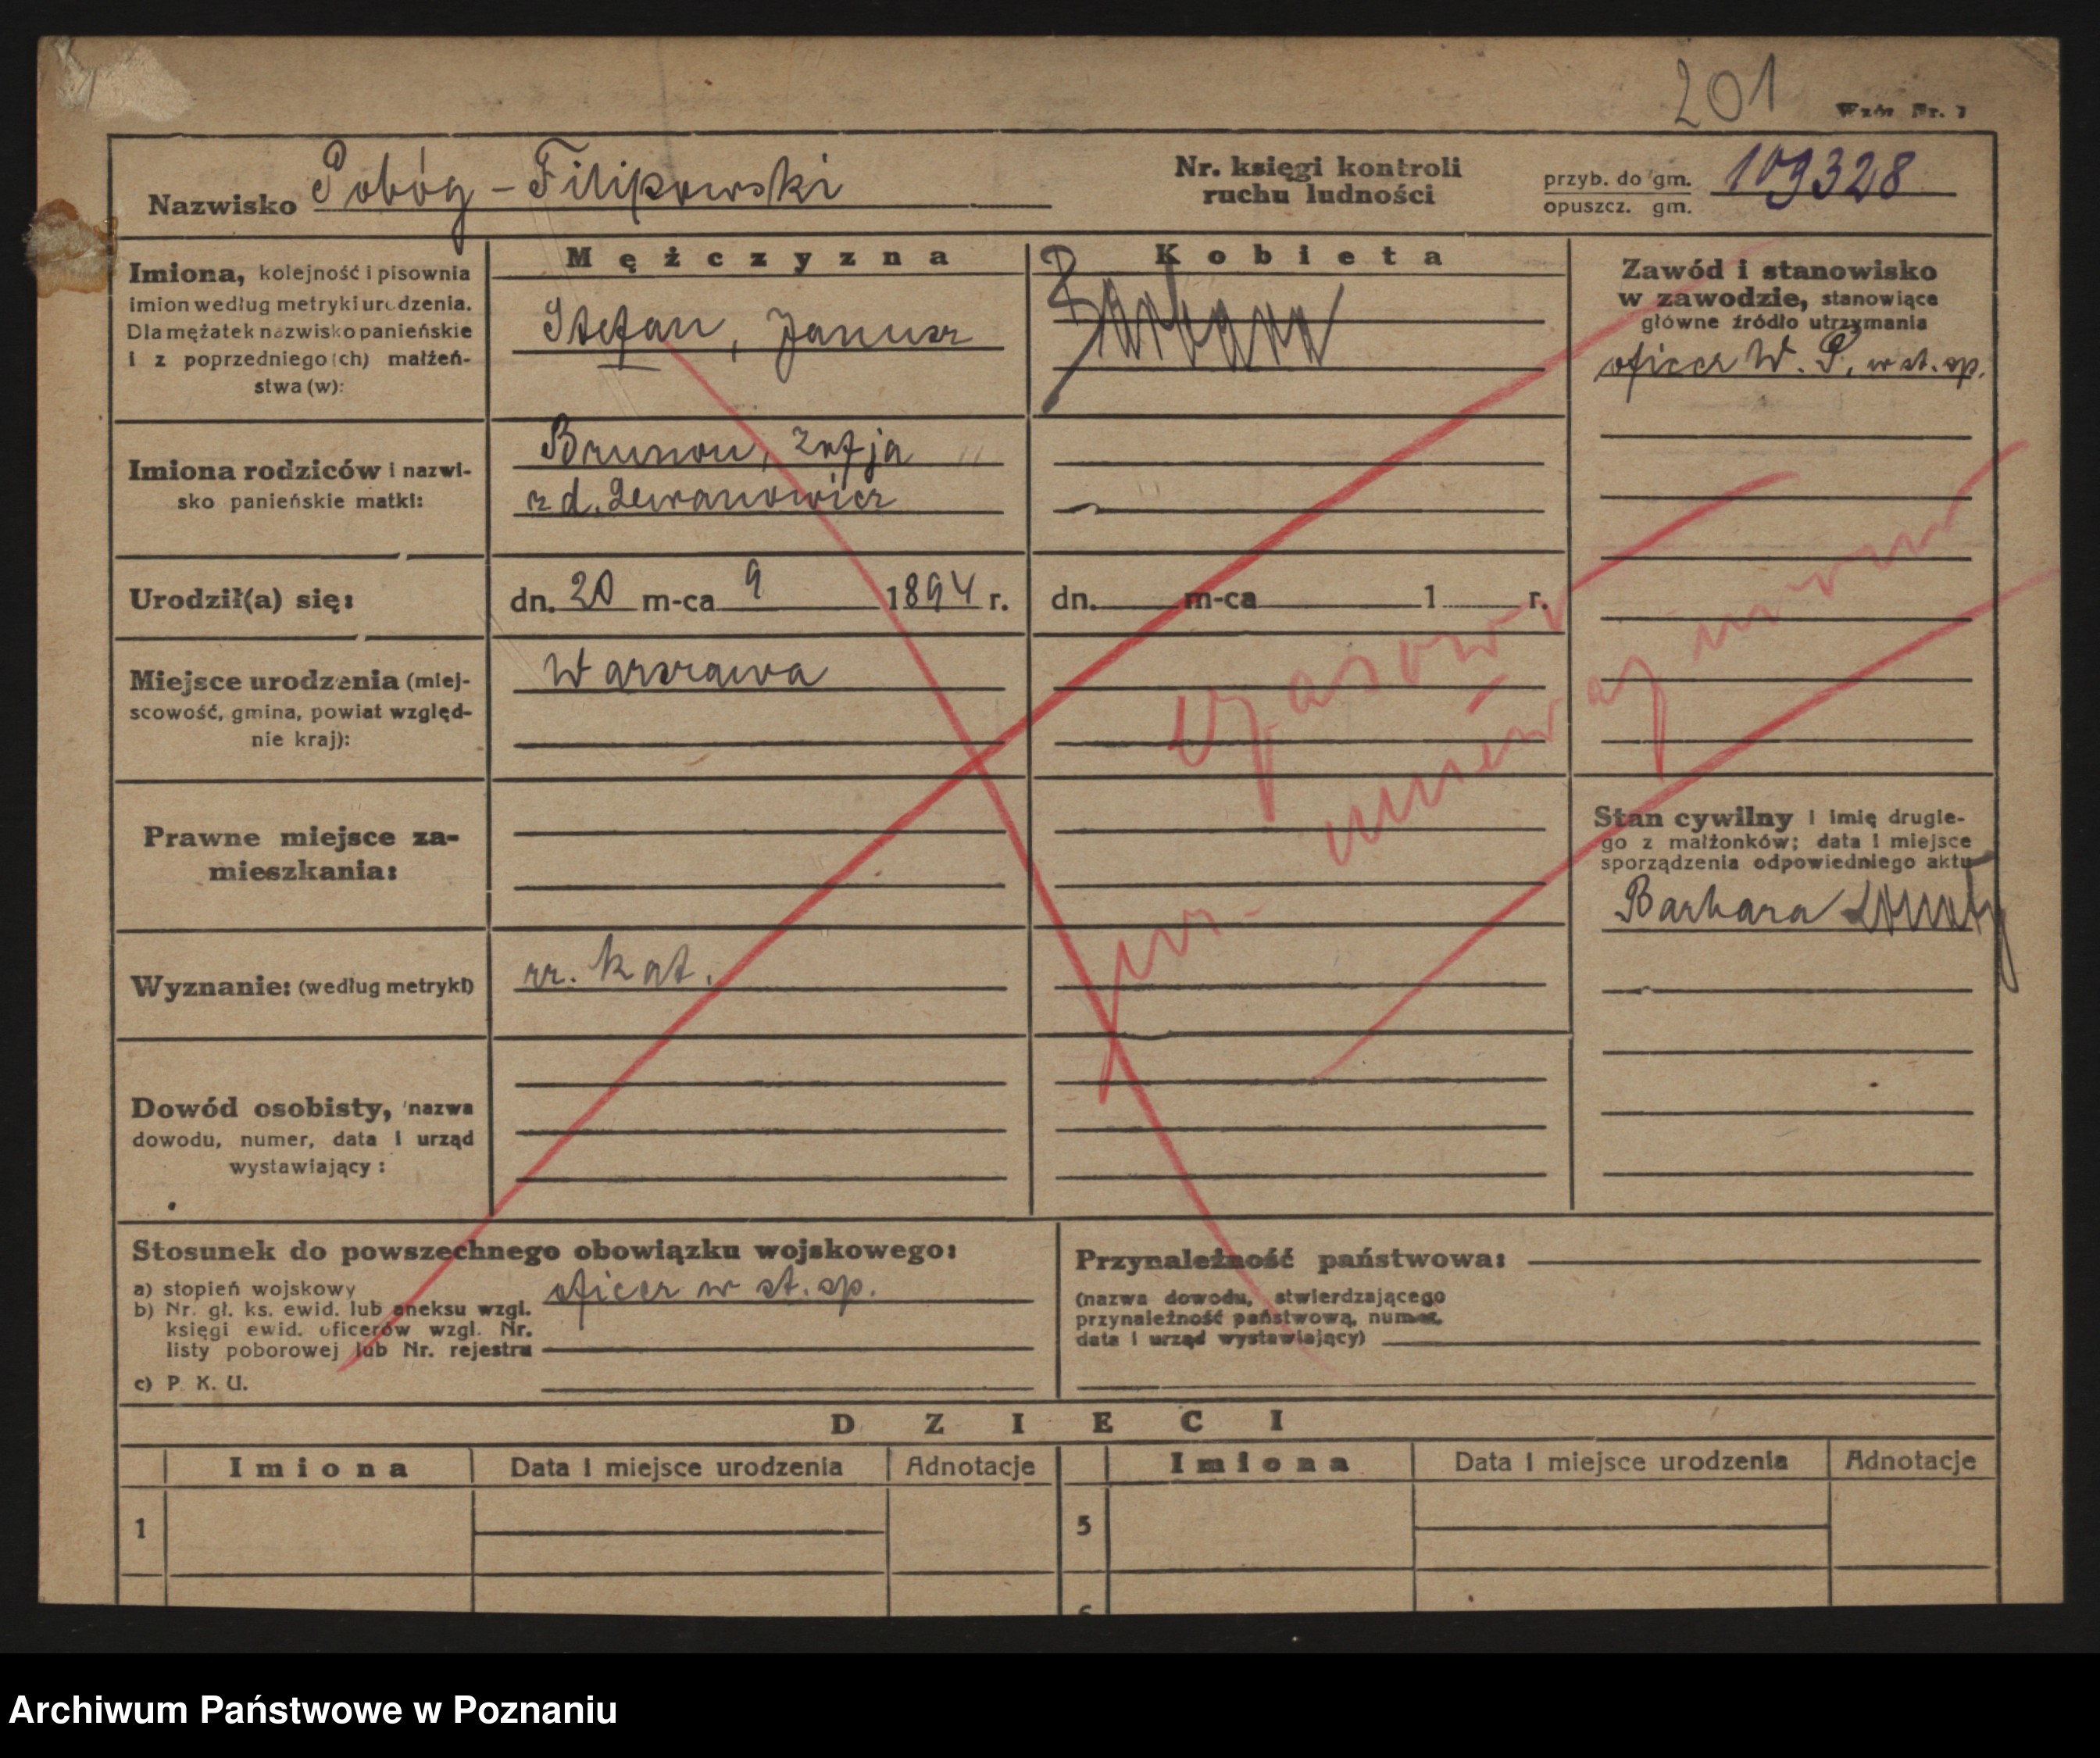 201
Wzór Nr. 1
Nazwisko Pobóg - Filipowski
Nr. księgi kontroli
ruchu ludności
przyb. do gm.
opuszcz. gm.
109328
Mężczyzna
Kobieta
Imiona, kolejność i pisownia
imion według metryki urodzenia.
Dla mężatek nazwisko panieńskie
i z poprzedniego (ch) małżeń-
stwa (w):
Stefan, Janusz
Barbara
Zawód i stanowisko
w zawodzie, stanowiące
główne źródło utrzymania
oficer W. P. w st. sp.
Imiona rodziców i nazwi-
sko panieńskie matki:
Brunon, Zofja
z d.
Urodził(a) się:
dn. 20 m-ca 9 1894 r.
dn. m-ca 1 r.
Miejsce urodzenia (miej-
scowość, gmina, powiat względ-
nie kraj):
Warszawa
Prawne miejsce za-
mieszkania:
Stan cywilny i imię drugie-
go z małżonków; data i miejsce
sporządzenia odpowiedniego aktu
Barbara
Wyznanie: (według metryki)
rz. kat.
Dowód osobisty, nazwa
dowodu, numer, data i urząd
wystawiający:
Stosunek do powszechnego obowiązku wojskowego:
a) stopień wojskowy
oficer w st. sp.
b) Nr. gł. ks. ewid. lub aneksu wzgl.
księgi ewid. oficerów wzgl. Nr.
listy poborowej lub Nr. rejestru
c) P. K. U.
Przynależność państwowa:
(nazwa dowodu, stwierdzającego
przynależność państwową, numer,
data i urząd wystawiający)
DZIECI
Imiona Data i miejsce urodzenia Adnotacje Imiona Data i miejsce urodzenia Adnotacje
1
5
Archiwum Państwowe w Poznaniu